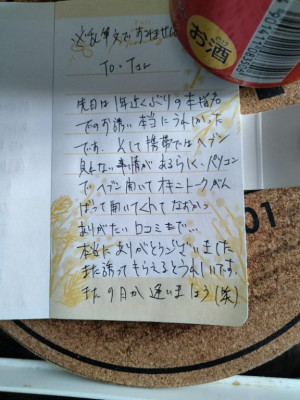 乱筆文ですみません
To.
先日は1年近くぶりの本指名
でのお誘い本当にうれしかった
です。そして携帯ではヘブン
見れない事情があるらしく、パソコン
でヘブン開いてオキニトークがん
ばって開いてくれてなおかつ
ありがたい口コミまで…
本当にありがとうございました
また誘ってもらえるとうれしいです。
またの日か逢いましょう(笑)
お酒
01